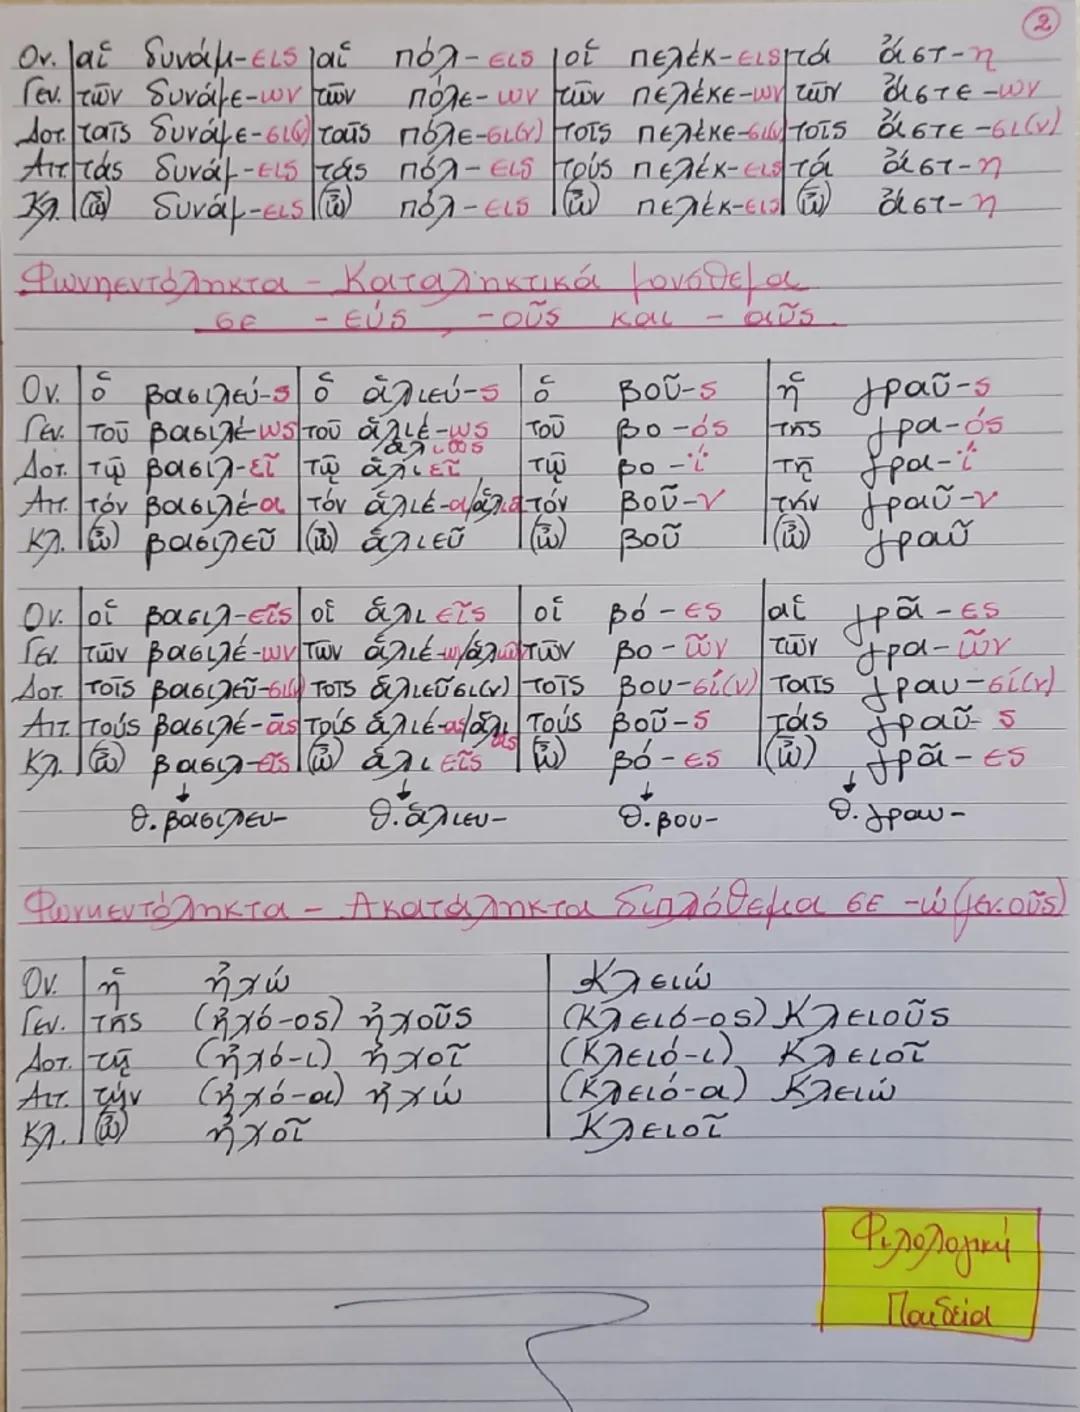 2
Ον. αἱ δυνάμ-εις αἱ πόλ-εις οἱ πελέκ-εις τά ἄστ-η
Γεν. τῶν δυνάμε-ων τῶν πόλε-ων τῶν πελέκε-ων τῶν ἄστε-ων
Δοτ. ταῖς δυνάμε-σι(ν) ταῖς πόλε-σι(ν) τοῖς πελέκε-σι(ν) τοῖς ἄστε-σι(ν)
Αιτ. τάς δυνάμ-εις τάς πόλ-εις τούς πελέκ-εις τά ἄστ-η
Κλ. (ὦ) δυνάμ-εις (ὦ) πόλ-εις (ὦ) πελέκ-εις (ὦ) ἄστ-η
Φωνηεντόληκτα - Καταληκτικά μονόθεμα
σε -εύς -οῦς και -αῦς.
Ον. ὁ βασιλεύ-ς ὁ ἁλιεύ-ς ὁ βοῦ-ς ἡ γραῦ-ς
Γεν. τοῦ βασιλέ-ως τοῦ ἁλιέ-ως τοῦ βο-ός τῆς γρα-ός
/ἁλιῶς
Δοτ. τῷ βασιλ-εῖ τῷ ἁλιεῖ τῷ βο-ΐ τῇ γρα-ΐ
Αιτ. τόν βασιλέ-α τόν ἁλιέ-α/ἁλιᾶ τόν βοῦ-ν τήν γραῦ-ν
Κλ. (ὦ) βασιλεῦ (ὦ) ἁλιεῦ (ὦ) βοῦ (ὦ) γραῦ
Ον. οἱ βασιλ-εῖς οἱ ἁλιεῖς οἱ βό-ες αἱ γρᾶ-ες
Γεν. τῶν βασιλέ-ων τῶν ἁλιέ-ων/ἁλιῶν τῶν βο-ῶν τῶν γρα-ῶν
Δοτ. τοῖς βασιλεῦ-σι(ν) τοῖς ἁλιεῦσι(ν) τοῖς βου-σί(ν) ταῖς γραυ-σί(ν)
Αιτ. τούς βασιλέ-ας τούς ἁλιέ-ας/ἁλιᾶς τούς βοῦ-ς τάς γραῦ-ς
Κλ. (ὦ) βασιλ-εῖς (ὦ) ἁλιεῖς (ὦ) βό-ες (ὦ) γρᾶ-ες
θ. βασιλευ- θ. ἁλιευ- θ. βου- θ. γραυ-
Φωνηεντόληκτα - Ακατάληκτα διπλόθεμα σε -ώ (γεν. οῦς)
Ον. ἡ ἠχώ Κλειώ
Γεν. τῆς (ἠχό-ος) ἠχοῦς (Κλειό-ος) Κλειοῦς
Δοτ. τῇ (ἠχό-ι) ἠχοῖ (Κλειό-ι) Κλειοῖ
Αιτ. τήν (ἠχό-α) ἠχώ (Κλειό-α) Κλειώ
Κλ. (ὦ) ἠχοῖ Κλειοῖ
Φιλολογική
Παιδεία